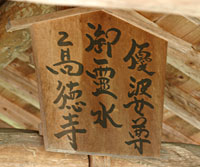 優婆尊
御霊水
高徳寺